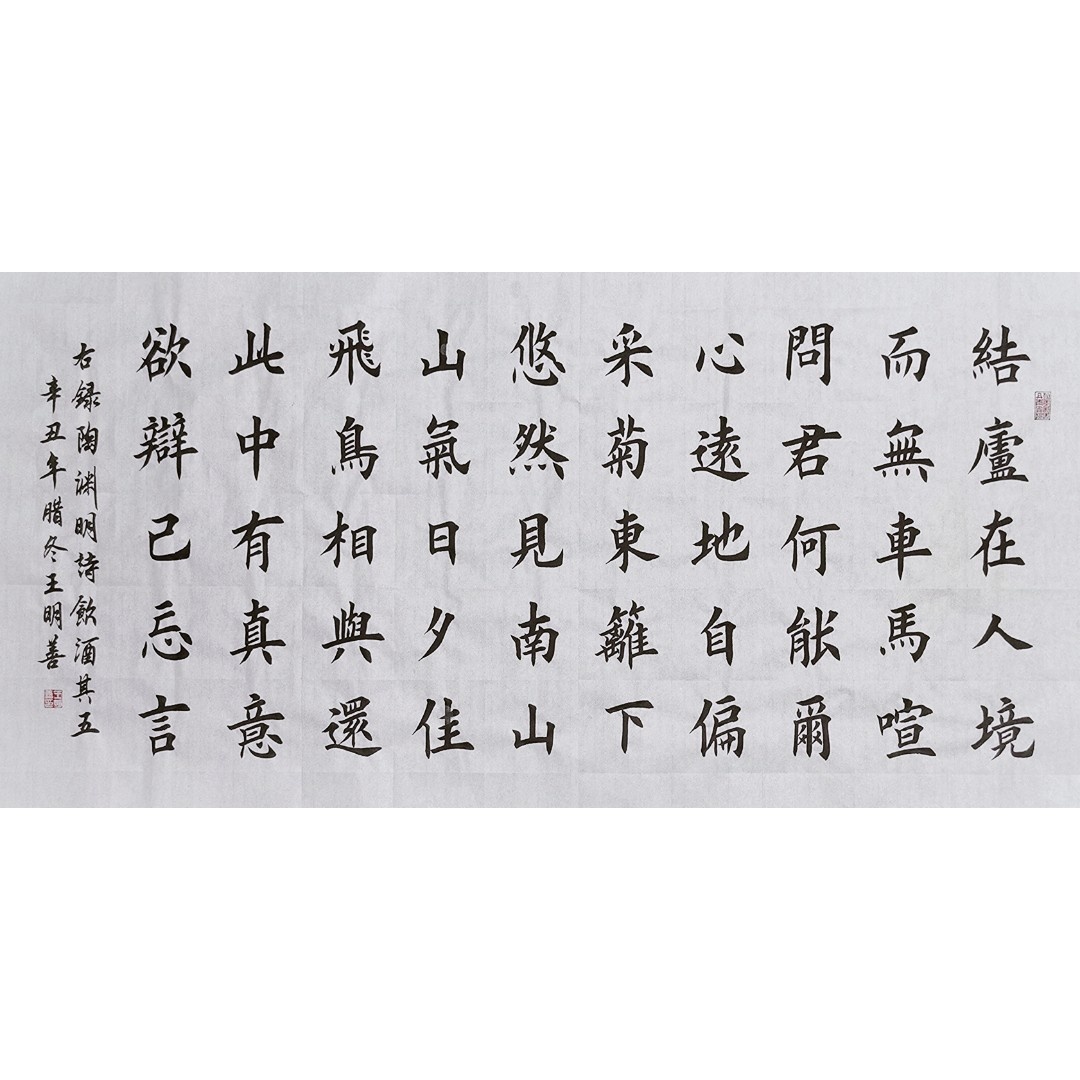 結廬在人境
而無車馬喧
問君何能爾
心遠地自偏
采菊東籬下
悠然見南山
山氣日夕佳
飛鳥相與還
此中有真意
欲辯已忘言
右録陶渊明詩飲酒其五
辛丑年腊冬王明善